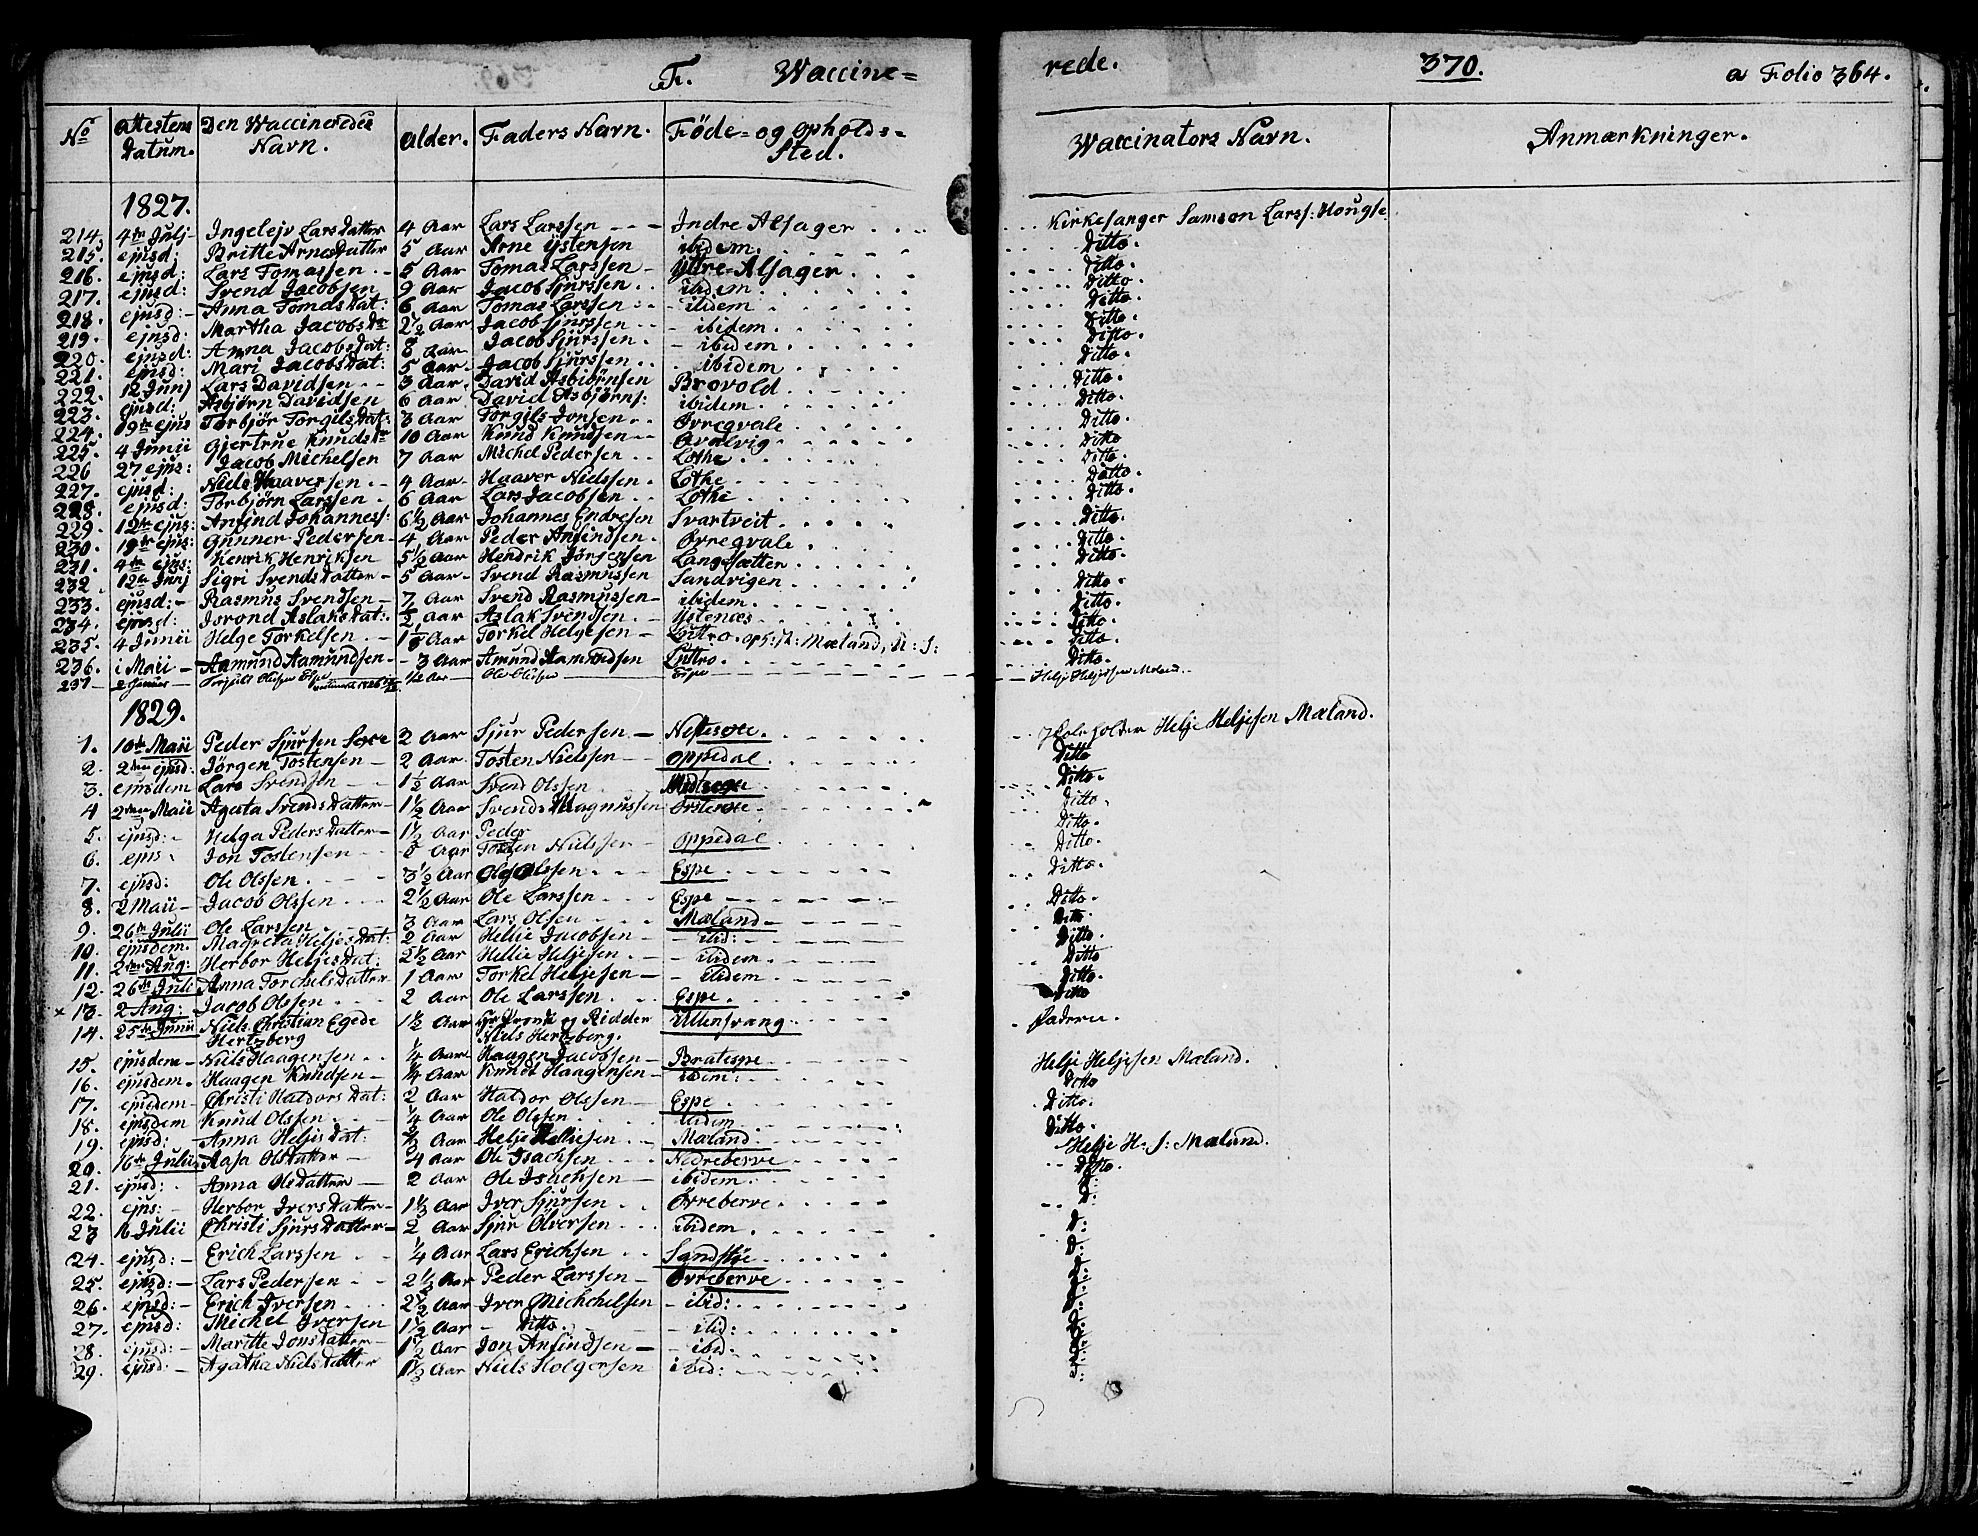 F. Waccine= rede. 370. a Folio 364.
No Attestens Datum. Den Waccineredes Navn. Alder. Faders Navn. Føde- og opholds= Sted. Waccinators Navn. Anmærkninger.
1827.
214. 4de Julj Ingelejv Lars Datter 4 Aar Lars Larssen Indre Alsager Kirkesanger Samson Larss: Hougse
215. ejusd: Britte Arnes Datter 5 Aar Arne Ystensen ibidem. Ditto.
216. ejusd: Lars Tomassen 5 Aar Tomas Larssen Yttre=Alsager Ditto.
217. ejusd: Svend Jacobsen 9 Aar Jacob Sjurssen ibidem: Ditto.
218. ejusd: Anna Tomas Dat: 6 Aar Tomas Larssen ibidem Ditto.
219. ejusd. Martha Jacobs Dr 2½ Aar Jacob Sjurssen ibidem Ditto.
220. ejusd: Anna Jacobs Dat: 8 Aar Jacob Sjurssen ibidem Ditto.
221. ejusd: Mari Jacobs Dat: 5 Aar Jacob Sjurssen ibidem Ditto.
222. 12 Junj Lars Davidsen 3 Aar David Asbiørnsen Brovold Ditto.
223. ejusd: Asbjørn Davidsen 6 Aar David Asbjørns: ibidem. Ditto.
224. 19de ejus Torbjør Torgils Dat: 3 Aar Torgils Jonsen Øvregvale Ditto.
225. 4 Junii Gjertrue Knuds Dr 10 Aar Knud Knudsen Qvalvig Ditto
226 27 ejus: Jacob Michelsen 7 Aar Michel Pedersen Lothe Ditto.
227. ejusd: Niels Haaversen 4 Aar Haaver Nielssen Lothe Ditto.
228. ejusd: Torbjørn Larssen 6 Aar Lars Jacobsen Lothe Ditto.
229. 12te ejus: Anfind Johanness: 6½ Aar Johannes Endresen Svartveit Ditto.
230. 19de ejus: Gunner Pedersen 4 Aar Peder Anfindsen Øvregvale Ditto.
231. 4de ejus: Henrik Henriksen 5½ Aar Hendrik Jørgensen Langesætter Ditto.
232. 12te Junj Sigri Svends Datter 5 Aar Svend Rasmussen Sandvigen Ditto.
233. ejusd: Rasmus Svendsen 7 Aar Svend Rasmussen ibidem. Ditto.
234. ejusd: Jorond Aslaks Dat: ½ Aar Aslak Svendsen Ystenæs Ditto.
235. 4 Junii Helge Torkelsen Aar Torkel Helgesen Luttro. Mæland, Ditto.
236. 1 Maii Aamund Aamundsen 3 Aar Amund Aamundsen Luttro Ditto.
237 ½ Aar Ole Olssen Espe Helje Heljessen Mæland.
1829.
1. 10de Maii Peder Sjursen 2 Aar Sjur Pedersen Helje Heljesen Mæland.
2. 2den ejusd: Jørgen Tostensen 2 Aar Tosten Nielssen Oppedal Ditto
3. ejusdem Lars Svendsen 1½ Aar Svend Olssen Ditto.
4 2den Maii Agata Svends Datter 1½ Aar Svend Magnussen Ditto.
5. ejusd: Helga Peders Datter 1½ Aar Peder Ditto.
6. ejus Jon Tostensen Aar Tosten Nielssen Oppedal Ditto.
7. ejusd: Ole Olssen 3½ Aar Ole Olssen Espe Ditto.
8. 2 Maii Jacob Olssen 2½ Aar Ole Larssen Espe Ditto.
9. 26de Julii Ole Larssen 3 Aar Lars Olsen Mæland Ditto
10. ejusdem. Magreta Heljes Dat: 2 Aar Hellie Jacobsen ibid: Ditto
11. 2den Aug: Herbor Heljes Dat: 2½ Aar Hellie Heljesen ibidem Ditto
12. 26de Juli Anna Torchels Datter 1 Aar Torkel Heljesen ibidem Ditto.
× 13. 2 Aug: Jacob Olssen 2 Aar Ole Larssen Espe. Ditto
14. 25de Junii Niels Christian Egede Hertzberg 1½ Aar Hr Provst og Ridder Niels Hertzberg. Ullensvang Faderen.
15. ejusdem Niels Haagensen ¼ Aar Haagen Jacobsen Bratespe Helje Heljesen Mæland.
16. ejusdem. Haagen Knudsen ¼ Aar Knudt Haagensen ibidem: Ditto
17. ejusdem Christi Haldors Dat: 2 Aar Haldor Olssen Espe Ditto.
18. ejusdem Knud Olssen ¼ Aar Ole Olssen ibidem Ditto.
19. ejusd: Anna Heljes Dat: Aar Helje Helliesen Mæland Helje H. S: Mæland.
20. 16de Julii Aasa Olsdatter 4 Aar Ole Isachsen Nedreberve Ditto.
21. ejusd: Anna Olsdatter 2 Aar Ole Isachsen ibidem D:
22. ejus: Herbor Ivers Datter 1½ Aar Iver Sjursen Øvreberve D:
23 16 Julii Christi Sjurs Datter 2 Aar Sjur Olversen ibidem D:
24. ejusd: Erich Larssen ¼ Aar Lars Erichsen D:
25. ejusd: Lars Pedersen 2½ Aar Peder Larssen Øvreberve D:
26. ejusd: Erich Iversen 2½ Aar Iver Michchelsen ibid: D:
27. ejusd: Michel Iversen 1½ Aar Ditto ibid: D:
28. ejusd: Maritte Jons Datter 1½ Aar Jon Anfindsen ibid: D:
29. ejusd: Agatha Niels Datter 1½ Aar Niels Holgersen ibid: D: